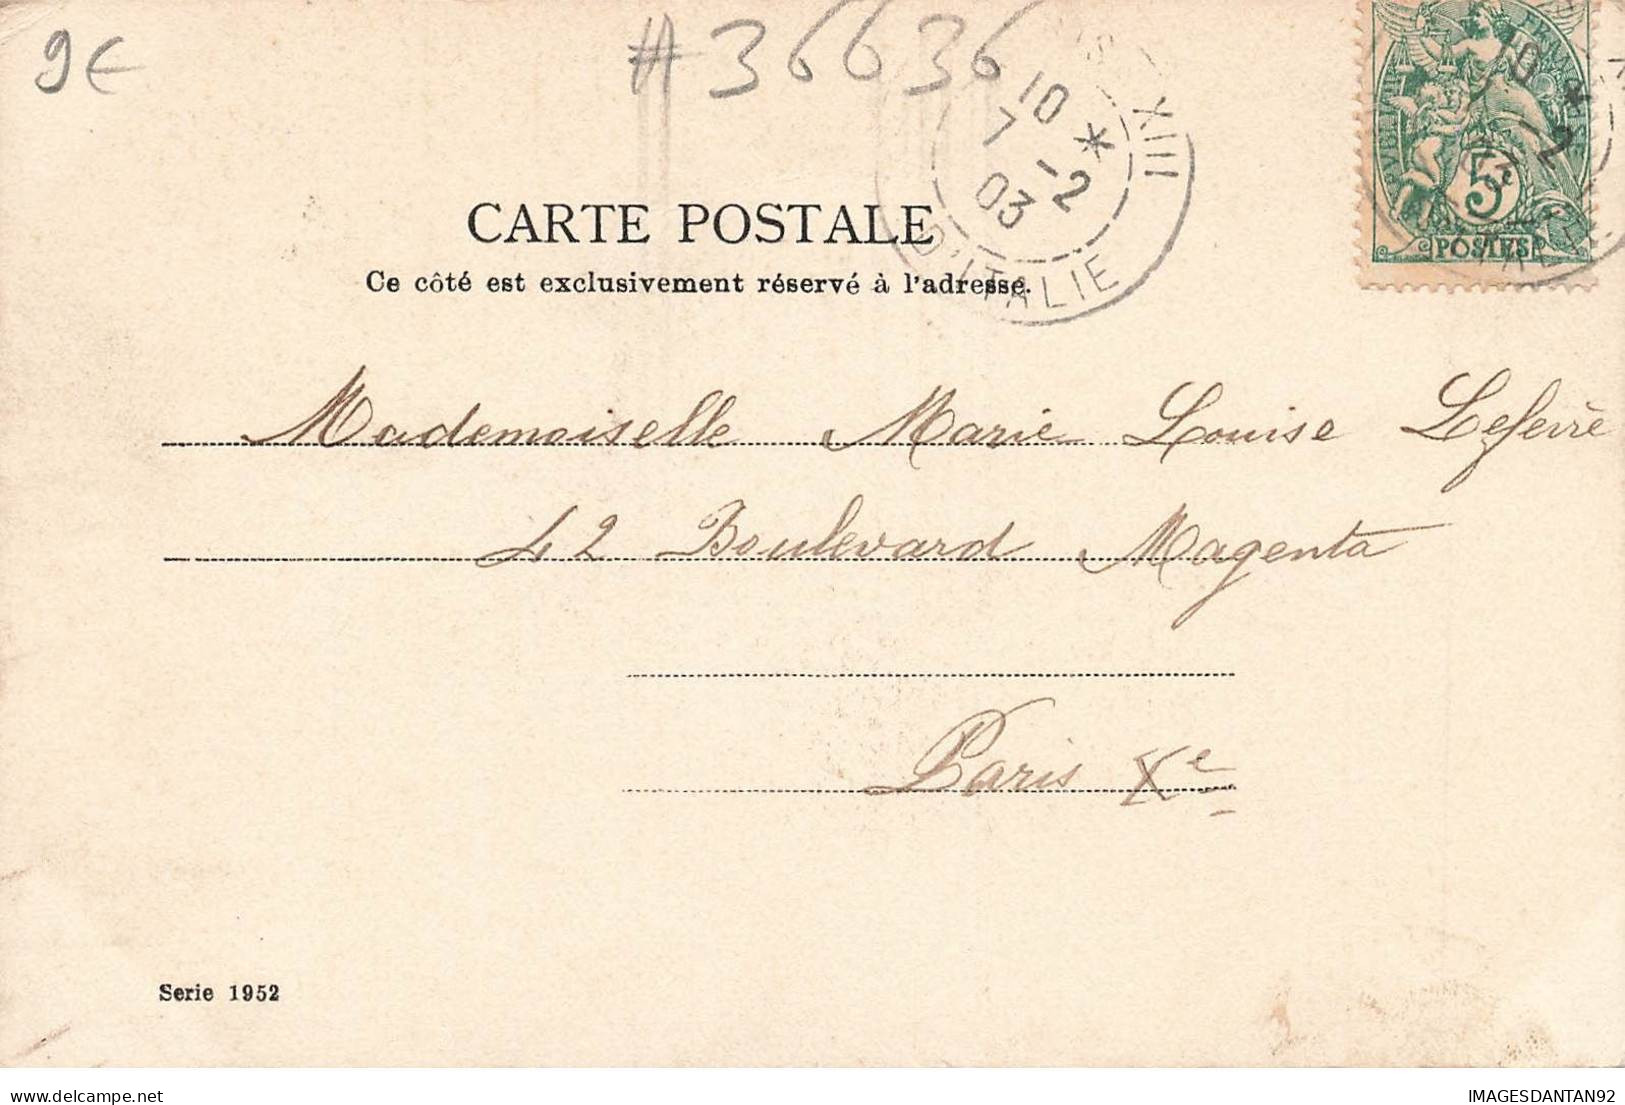 9€
#36636
XIII
10 *
7 -2
03
D'ITALIE
5
POSTES
CARTE POSTALE
Ce côté est exclusivement réservé à l'adresse.
Mademoiselle Marie Louise Lefeivre
42 Boulevard Magenta
Paris Xe
Serie 1952
IMAGESDANTAN92